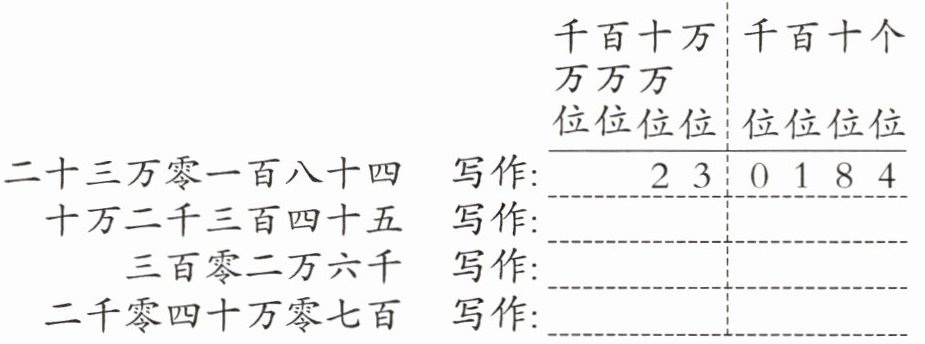 千百十万 千百十个
万万万
位位位位 位位位位
二十三万零一百八十四 写作: 2 3 0 1 8 4
十万二千三百四十五 写作:
三百零二万六千 写作:
二千零四十万零七百 写作: